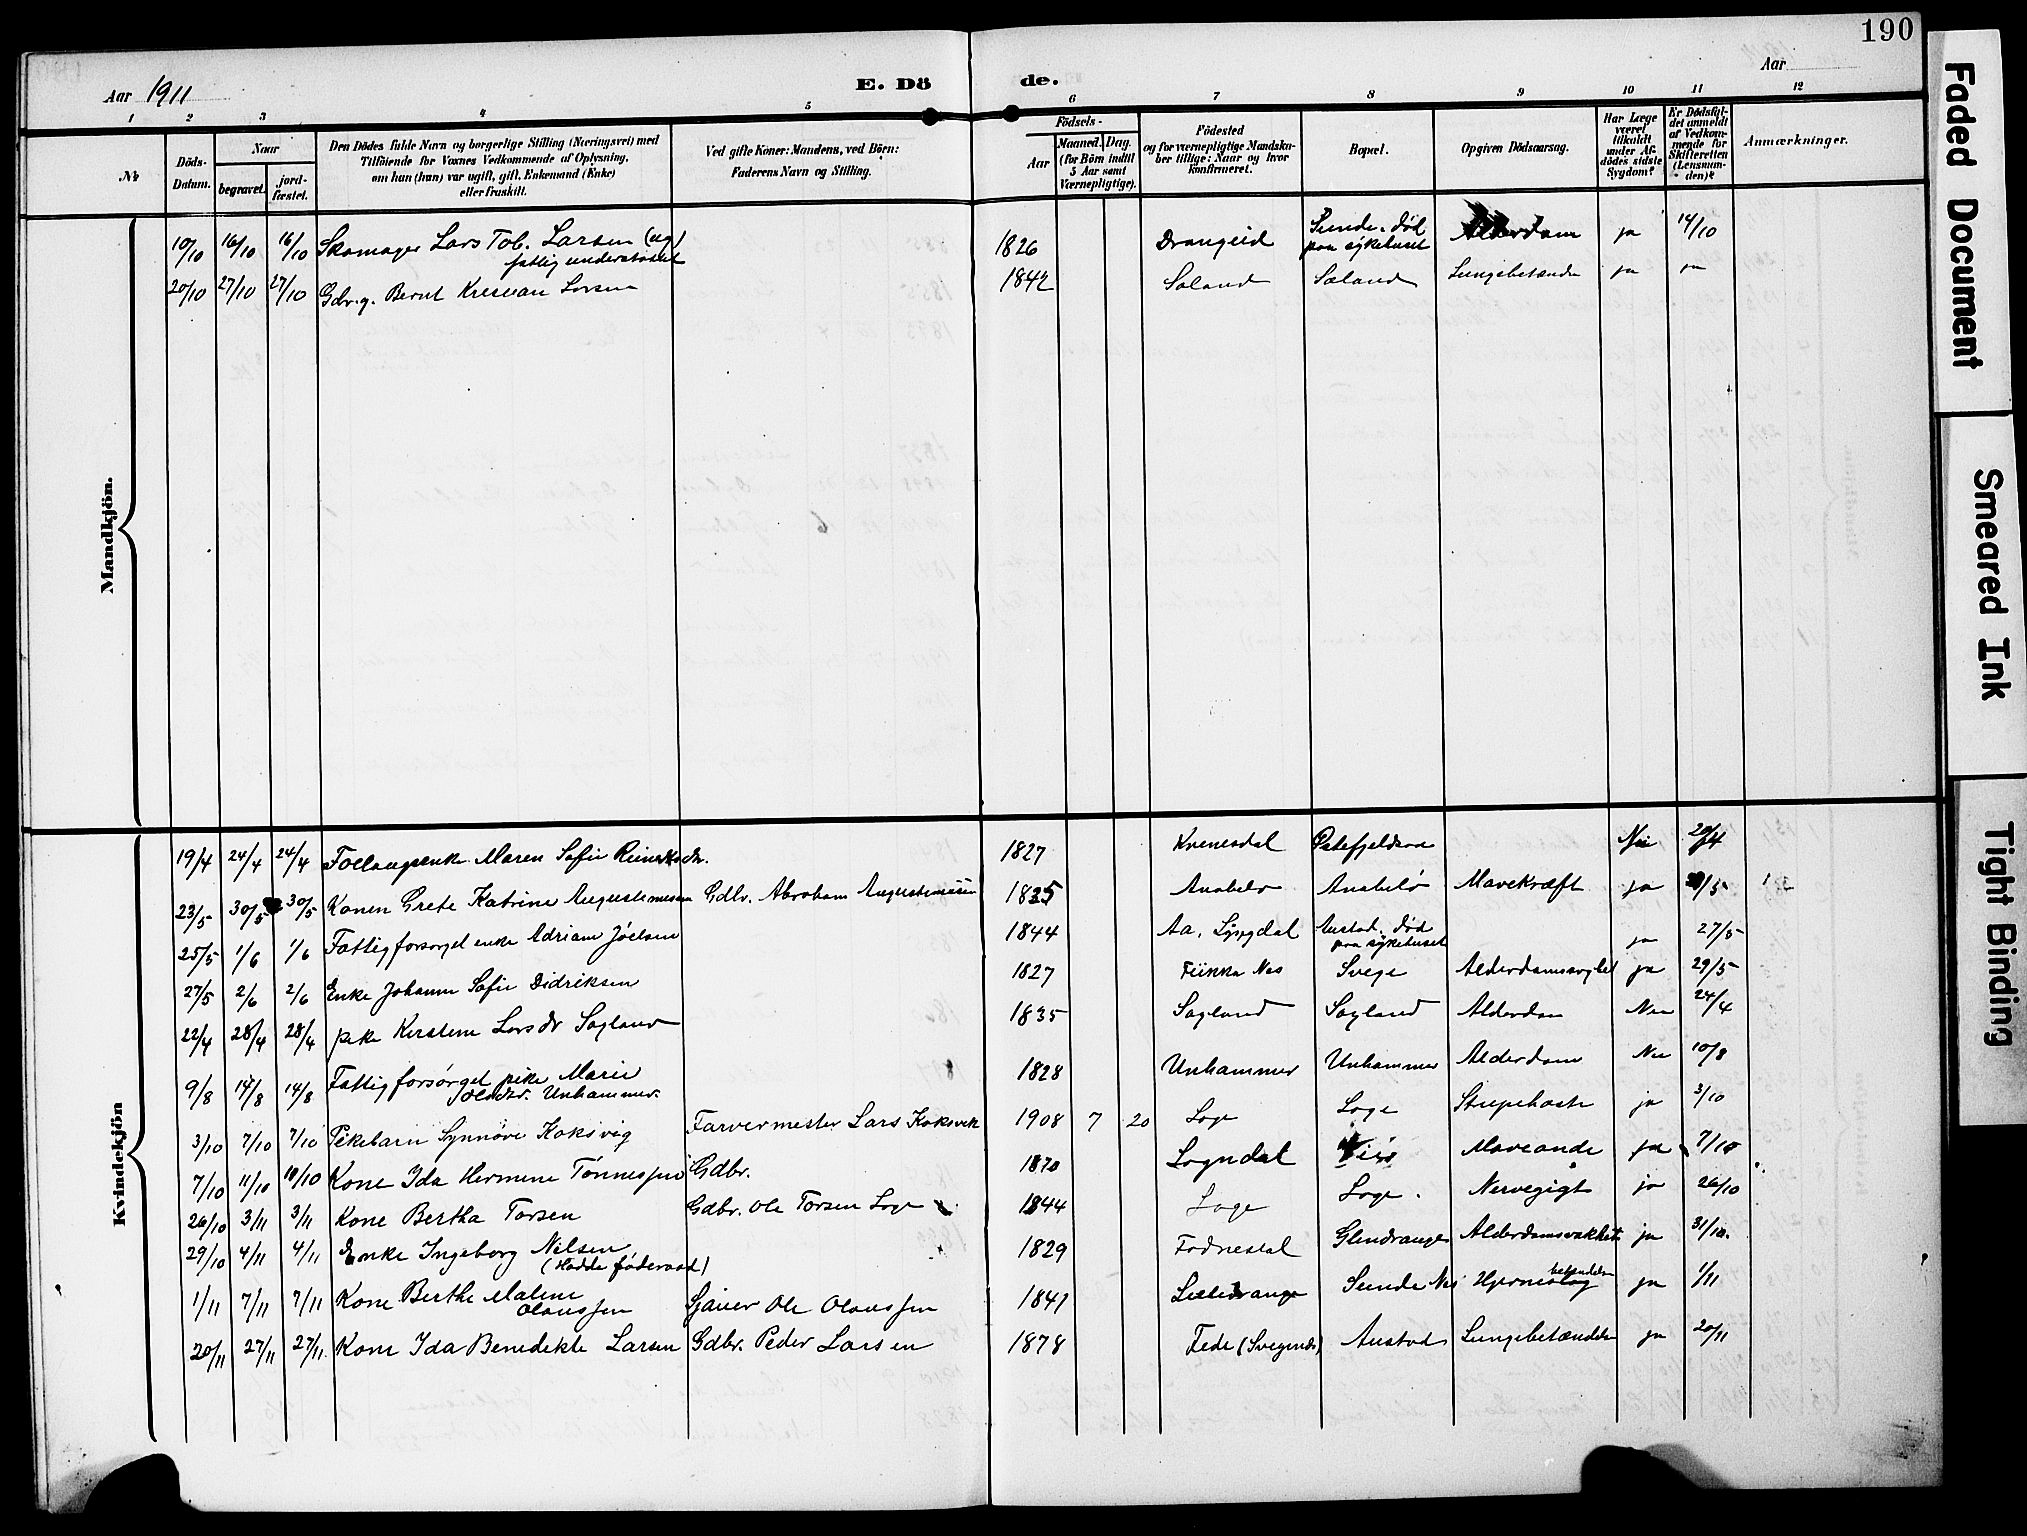 190
Aar 1911
E. Dö
de.
Aar
1 2 3 4 5 6 7 8 9 10 11 12
№
Döds-Datum.
Naar
begravet.
jord-fæstet.
Den Dödes fulde Navn og borgerlige Stilling (Næringsvei) med
Tilföiende for Voxnes Vedkommende af Oplysning,
om han (hun) var ugift, gift, Enkemand (Enke)
eller fraskilt.
Ved gifte Koner: Mandens, ved Börn:
Faderens Navn og Stilling.
Födsels-
Aar
Maaned. Dag.
(for Börn indtil
5 Aar samt
Værnepligtige).
Födested
og for værnepligtige Mandska-
ber tillige: Naar og hvor
konfirmeret.
Bopæl.
Opgiven Dödsaarsag.
Har Læge
været
tilkaldt
under Af-
dödes sidste
Sygdom?
Er Dödsfal-
det anmeldt
af Vedkom-
mende for
Skifteretten
(Lensman-
den)?
Anmærkninger.
Mandkjön.
10/10 16/10 16/10 Skomager Lars Tob. Larsen (ug) fattig understøttet 1826 Drangeid Sunde. død paa sykehuset Alderdom ja 14/10
20/10 27/10 27/10 Gdbr. g. Bernt Larsen 1842 Saland Saland Lungebetænde ja ja
6
Kvindekjön
19/4 24/4 24/4 enke Maren Sofie 1827 Kvinesdal Nei 20/4
23/5 30/5 30/5 Konen Grete Katrine Augustinussen Gdbr. Abraham Augustinussen 1835 Anabelø Anabelø Mavekræft ja /5
25/5 1/6 1/6 Fattigforsørget enke Adriane Joelsen 1844 Aa, Lyngdal Austad. død paa sykehuset ja 27/5
27/5 2/6 2/6 Enke Johanne Sofie Didriksen 1827 Nes Svege ja 29/5
22/4 28/4 28/4 pike Kirstine Larsdr Sagland 1835 Sagland Sagland Alderdom Nei 24/4
9/8 14/8 14/8 Fattigforsørget pike Marie Unhammer. 1828 Unhammer Unhammer Alderdom Nei 10/8
3/10 7/10 7/10 Pikebarn Synnøve Koksvig Farvermester Lars Koksvik 1908 7 20 Loge Loge Strupehoste ja 3/10
7/10 11/10 11/10 Kone Ida Hermine Tønnessen Gdbr. 1870 Sogndal ja 7/10
26/10 3/11 3/11 Kone Bertha Torsen Gdbr. Ole Torsen Loge 1844 Loge Loge. Nervegigt ja 26/10
29/10 4/11 4/11 Enke Ingeborg Nilsen (Hadde føderaad) 1829 Fodnestøl Glendrange Alderdomssvakhet ja 31/10.
1/11 7/11 7/11 Kone Berthe Maline Olaussen Sjauer Ole Olaussen 1841 Liledrange Sunde Nes ja 1/11
20/11 27/11 27/11 Kone Ida Benedikte Larsen Gdbr. Peder Larsen 1878 Fede (Svegends) Austad Lungebetændelse ja 20/11
Faded Document
Smeared Ink
Tight Binding